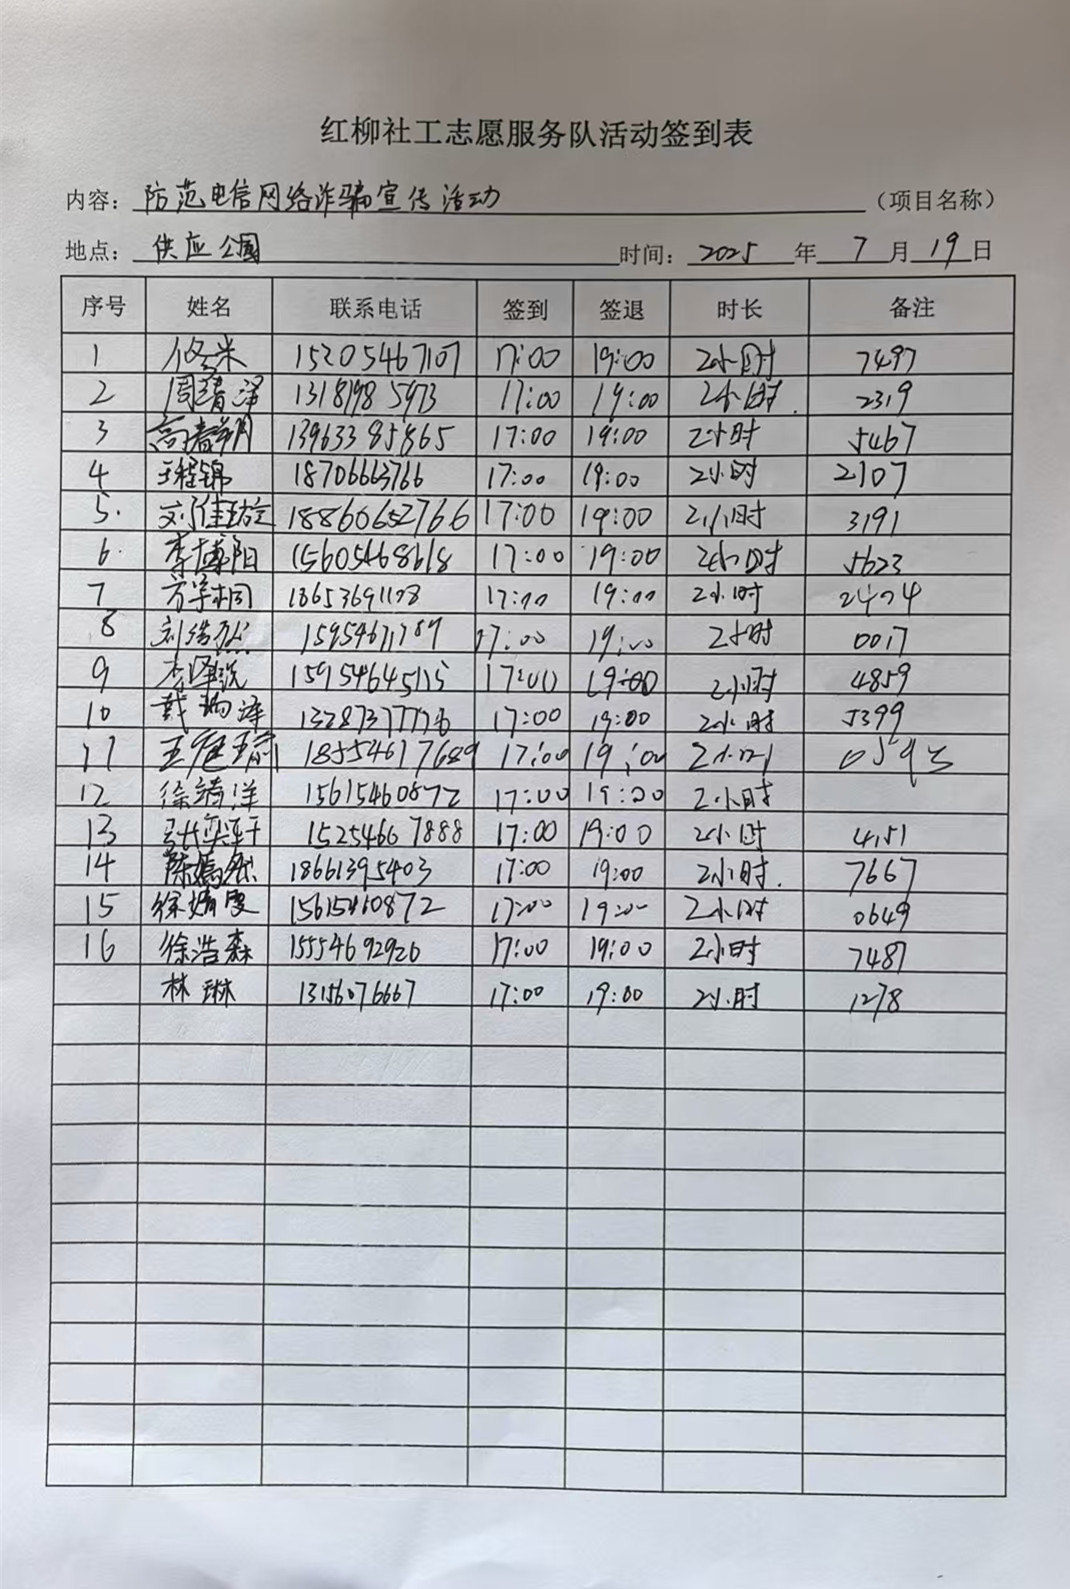 红柳社工志愿服务队活动签到表
内容：防范电信网络诈骗宣传活动（项目名称）
地点：供应公園 时间：2025年7月19日
序号 姓名 联系电话 签到 签退 时长 备注
1 修米 15205467107 17:00 19:00 2小时 7497
2 周靖泽 13181985973 17:00 19:00 2小时. 2319
3 高春翔 13963385865 17:00 19:00 2小时 5467
4 王程锦 18706663766 17:00 19:00 2小时 2107
5. 刘佳璇 18860652766 17:00 19:00 2小时 3191
6. 李博阳 15605468618 17:00 19:00 2小时 5623
7 17:00 19:00 2小时
8 刘浩然 17:00 19:00 2小时 0017
9 17:00 19:00 2小时 4859
10 17:00 19:00 2小时 5399
11 王庭瑜 18554617689 17:00 19:00 0593
12 徐靖洋 15615460872 17:00 19:00 2小时
13 张奕轩 15254667888 17:00 19:00 2小时 4151
14 陈嫣然 18661395403 17:00 19:00 2小时. 7667
15 15615460872 17:00 19:00 2小时 0649
16 徐浩森 15554692926 17:00 19:00 2小时 7487
林琳 13156076667 17:00 19:00 2小时 1278